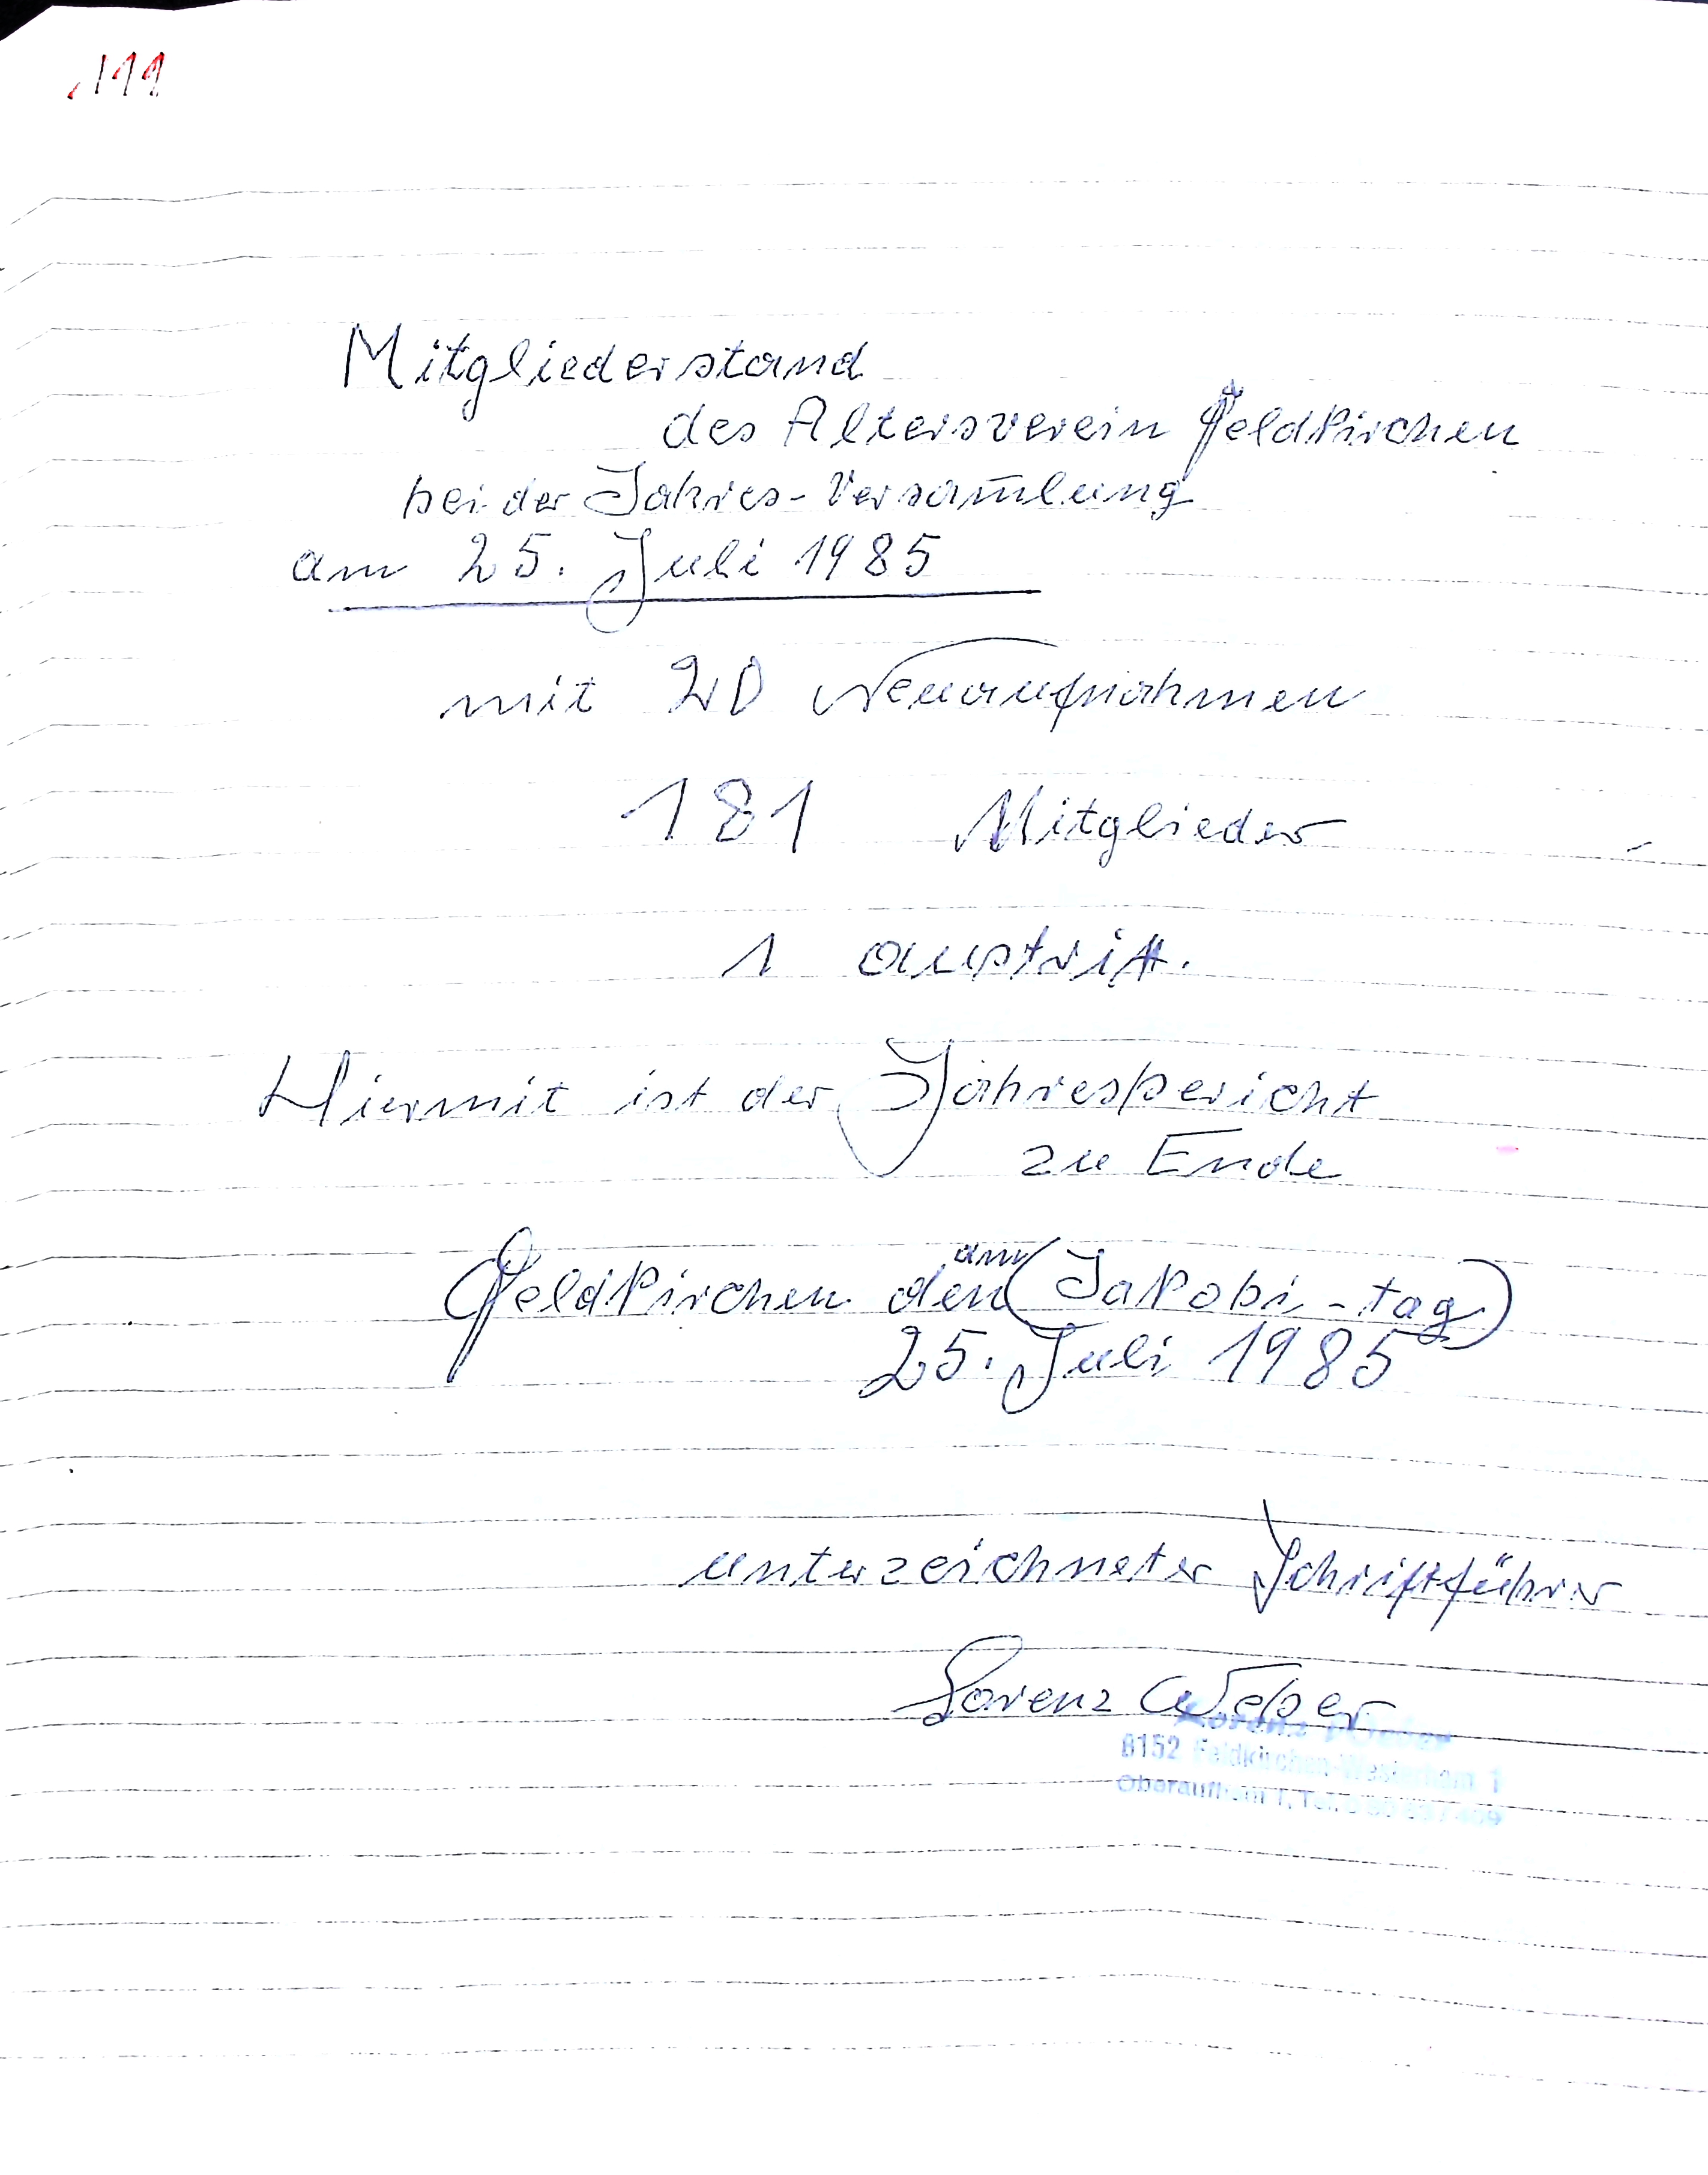 111
Mitgliederstand
des Altersverein Feldkirchen
bei der Jahres-Versam̄lung
am 25. Juli 1985
mit 20 Neuaufnahmen
181 Mitglieder
1 austritt.
Hiermit ist der Jahresbericht
zu Ende
Feldkirchen den am (Jakobi-tag)
25. Juli 1985
unterzeichneter Schriftführer
Lorenz Weber
Lorenz Weber
8152 Feldkirchen-Westerham 1
Oberaufham 1, Tel.